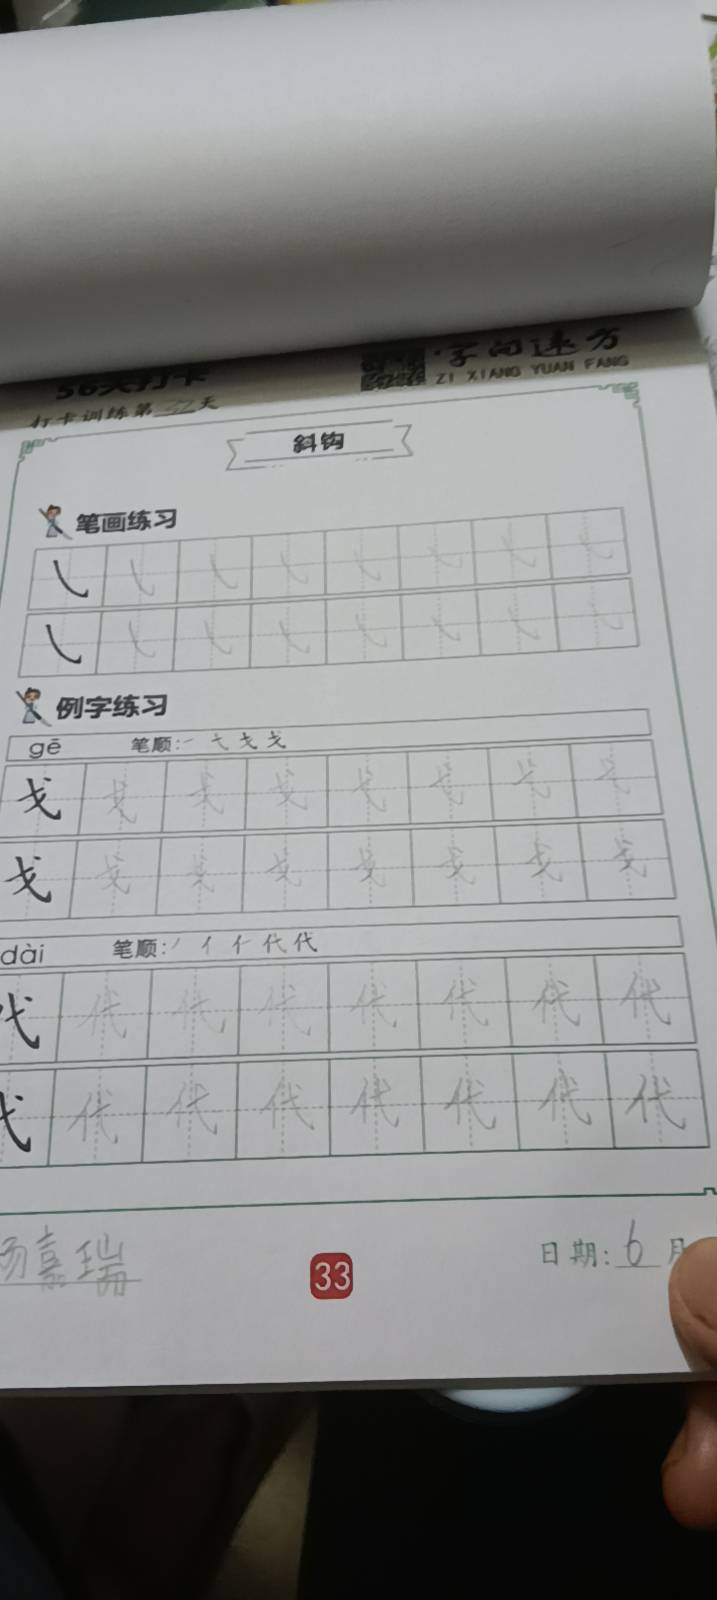 56天打卡
打卡训练第32天
·字向速方
ZI XIANG YUAN FANG
斜钩
笔画练习
㇂ ㇂ ㇂ ㇂ ㇂ ㇂ ㇂ ㇂
㇂ ㇂ ㇂ ㇂ ㇂ ㇂ ㇂ ㇂
例字练习
gē 笔顺:一 七 戈 戈
戈 戈 戈 戈 戈 戈 戈 戈
戈 戈 戈 戈 戈 戈 戈 戈
dài 笔顺:丿 亻 仁 代 代
代 代 代 代 代 代 代 代
代 代 代 代 代 代 代 代
杨嘉瑞
33
日期:6月